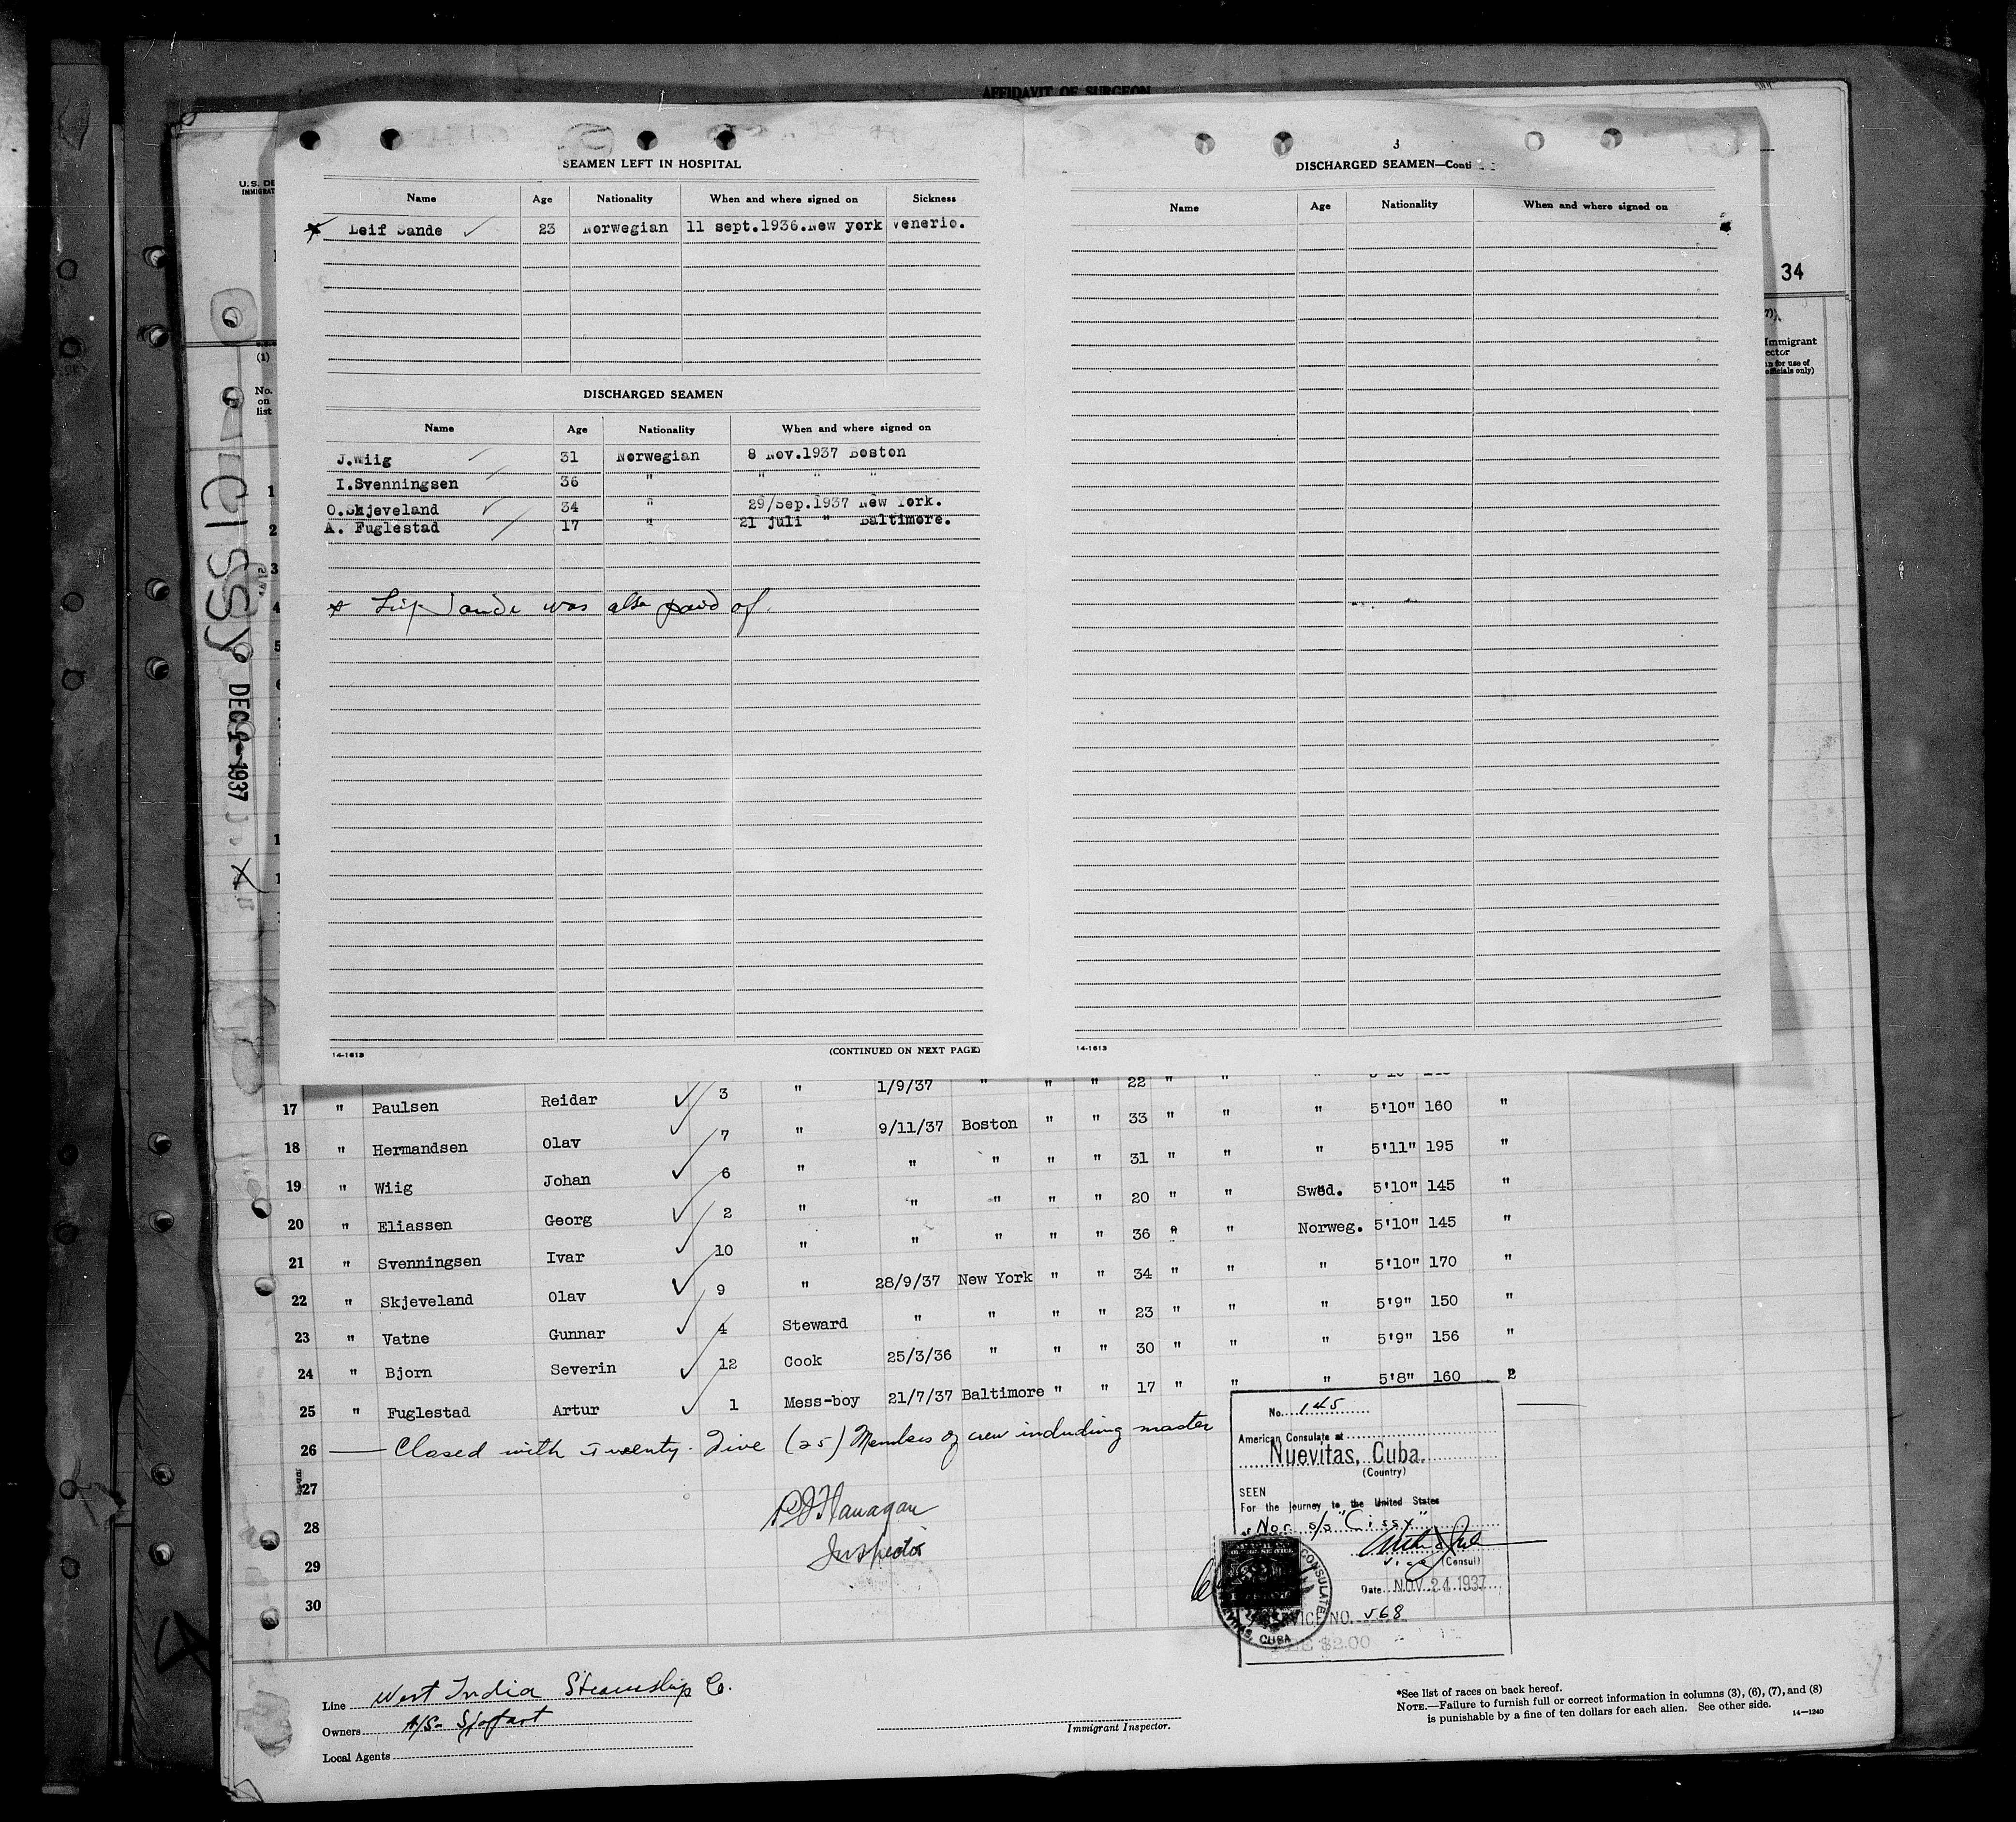 AFFIDAVIT OF SURGEON
U. S. DE
IMMIGRAT
34
(1)
No.
on
list
Immigrant
ector
officials only)
CISSY DEC 1-1937
SEAMEN LEFT IN HOSPITAL
Name Age Nationality When and where signed on Sickness
Leif Sande 23 Norwegian 11 sept.1936.New york Venerio.
DISCHARGED SEAMEN
Name Age Nationality When and where signed on
J.Wiig 31 Norwegian 8 Nov.1937 Boston
I.Svenningsen 36 " " " "
O.Skjeveland 34 " 29/Sep.1937 New York.
A. Fuglestad 17 " 21 juli " Baltimore.
Leif Sande was also paid of.
14-1613 (CONTINUED ON NEXT PAGE)
3
DISCHARGED SEAMEN—Conti
Name Age Nationality When and where signed on
14-1613
17 " Paulsen Reidar 3 " 1/9/37 " " " 22 " " "
18 " Hermandsen Olav 7 " 9/11/37 Boston " " 33 " " " 5'10" 160 "
19 " Wiig Johan 6 " " " " " 31 " " " 5'11" 195 "
20 " Eliassen Georg 2 " " " " " 20 " " Swed. 5'10" 145 "
21 " Svenningsen Ivar 10 " " " " " 36 " " Norweg. 5'10" 145 "
22 " Skjeveland Olav 9 " 28/9/37 New York " " 34 " " " 5'10" 170 "
23 " Vatne Gunnar 4 Steward " " " " 23 " " " 5'9" 150 "
24 " Bjorn Severin 12 Cook 25/3/36 " " " 30 " " " 5'9" 156 "
25 " Fuglestad Artur 1 Mess-boy 21/7/37 Baltimore " " 17 " " " 5'8" 160
26 Closed with Twenty-Five (25) Members of crew including master
27
28 Flanagan
29 Inspector
30
No. 145
American Consulate at
Nuevitas, Cuba.
(Country)
SEEN
For the journey to the United States
Nor. s/s "Cissy"
Vice (Consul)
Date NOV 24 1937
SERVICE NO. 568
FEE $2.00
CONSULATE
CUBA
Line West India Steamship Co.
Owners A/S Sjofart
Local Agents
Immigrant Inspector.
*See list of races on back hereof.
NOTE.—Failure to furnish full or correct information in columns (3), (6), (7), and (8)
is punishable by a fine of ten dollars for each alien. See other side.
14—1240